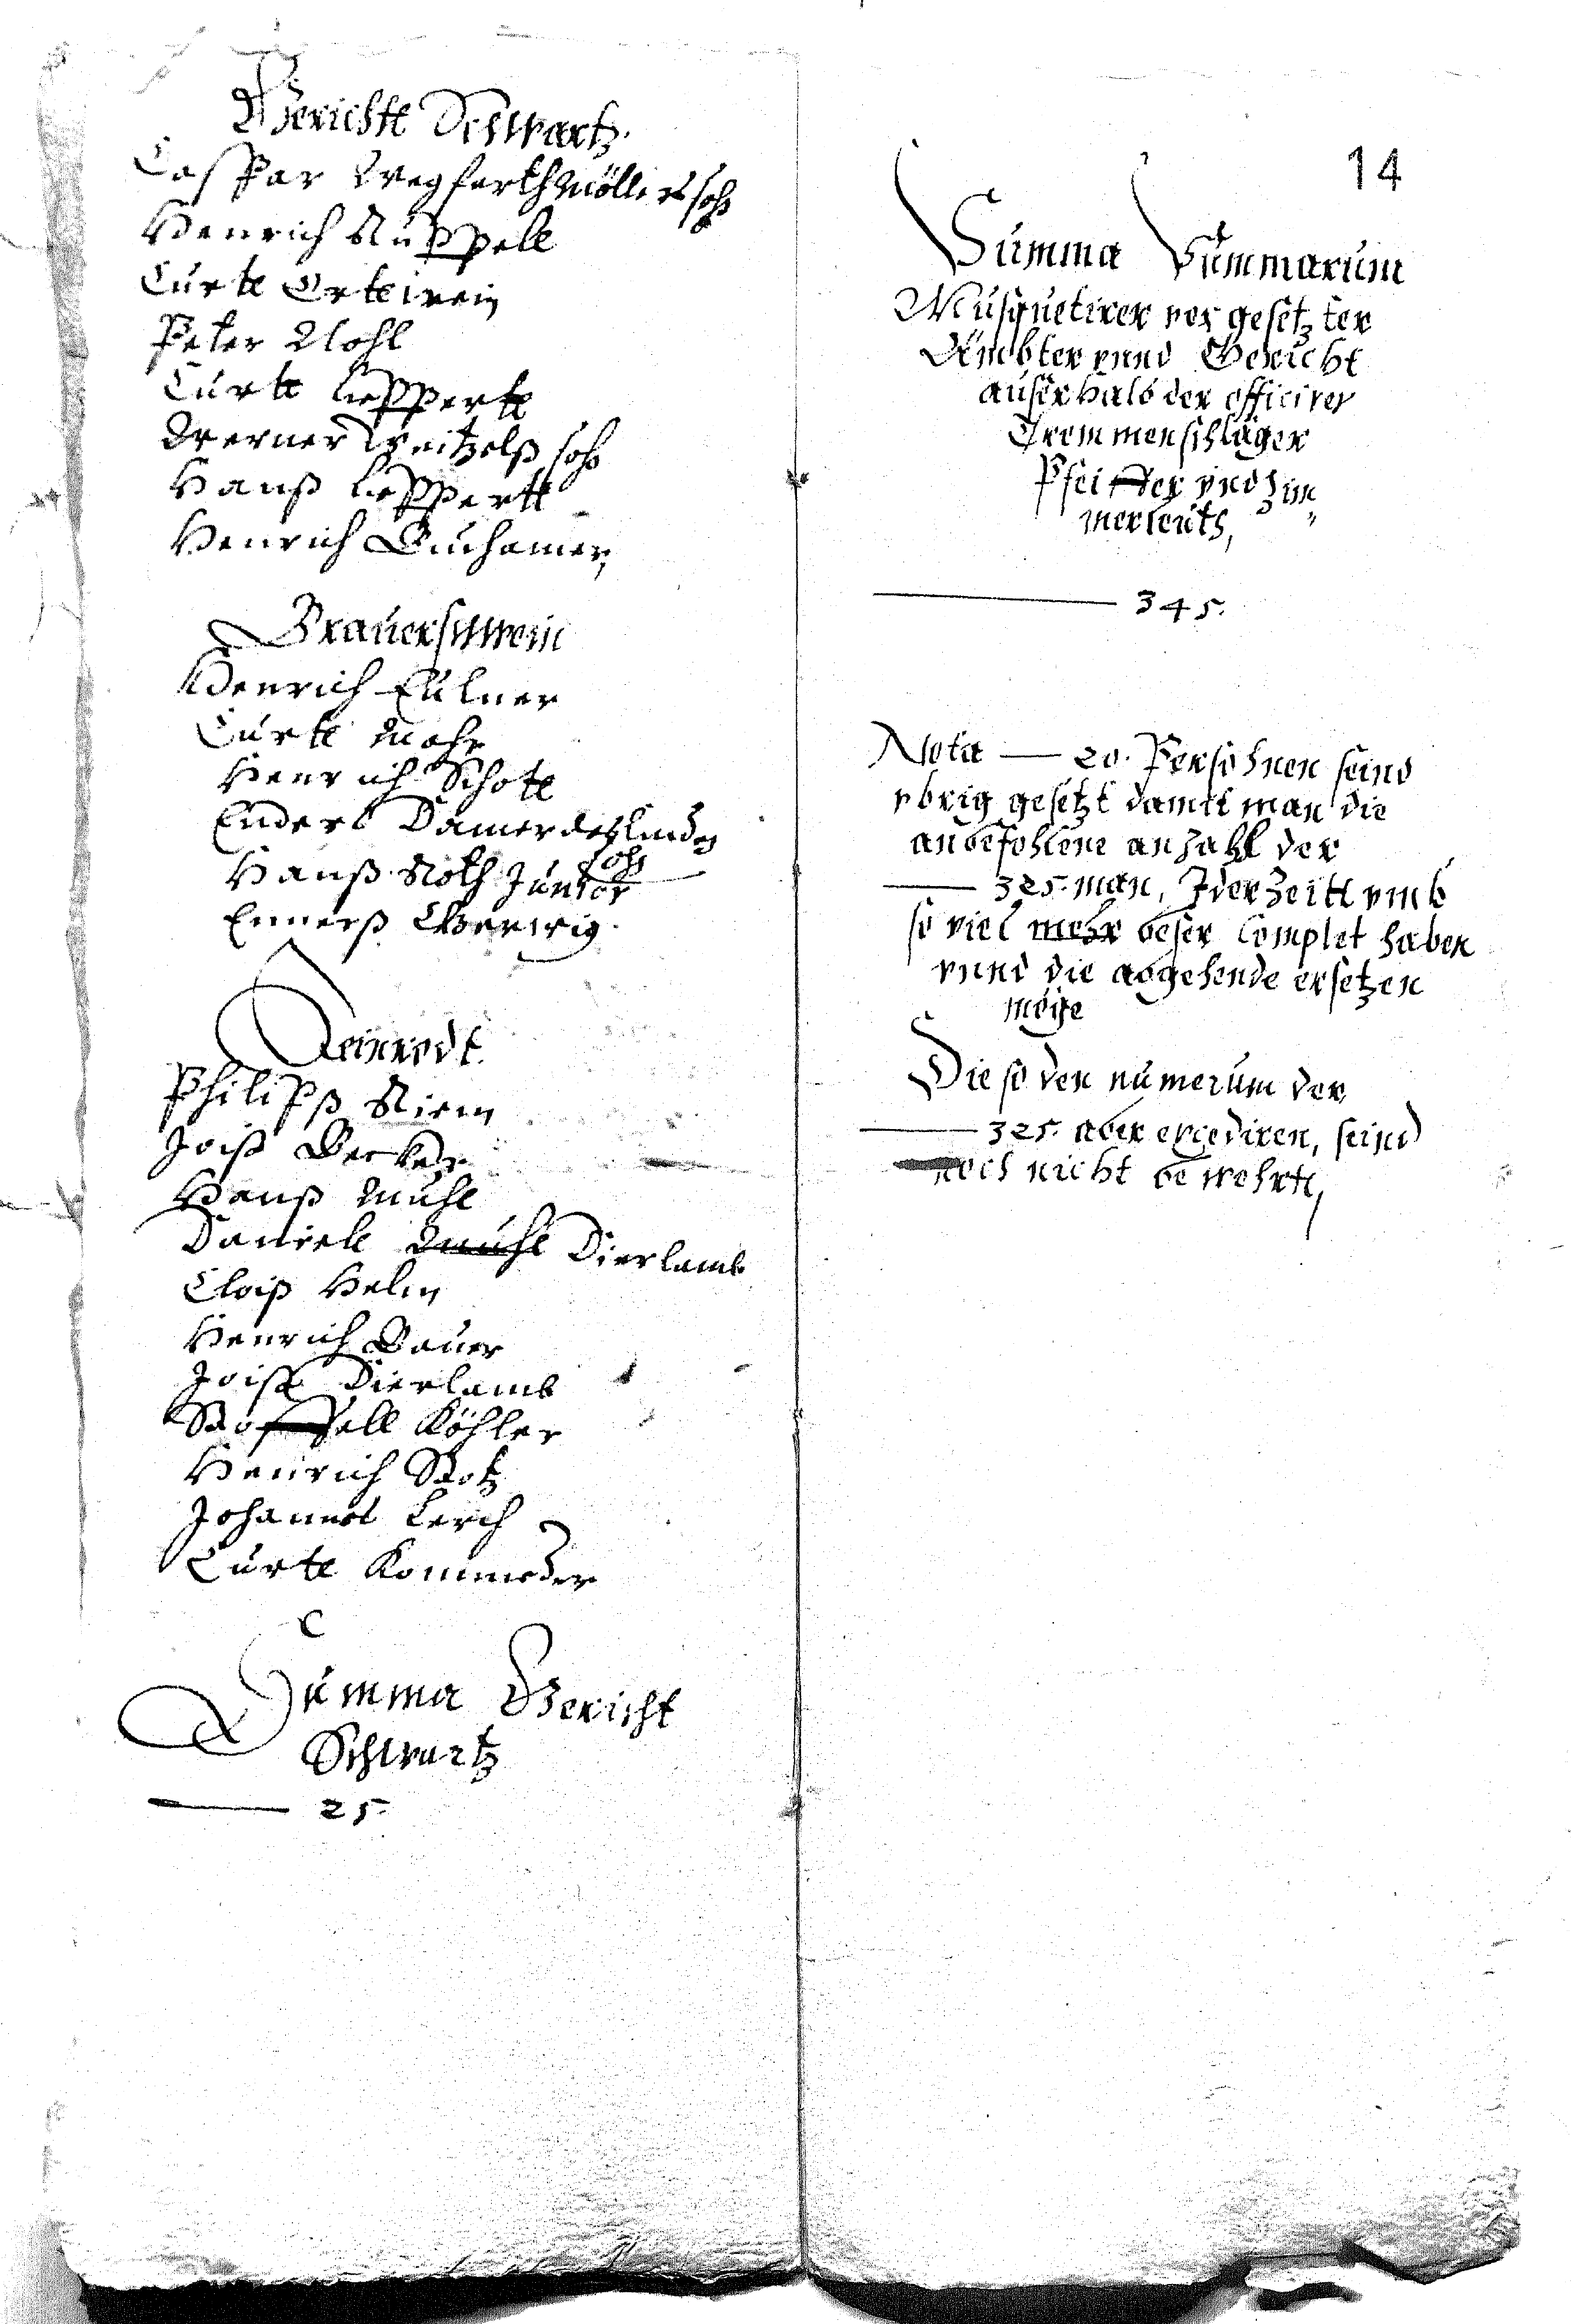 Gerichtt Schwartz.
Caspar Wegfarth Möllers sohn
Henrich Ruppell
Curtt Ortwein
Peter Nohl
Curtt Lippertt
Werner Weitzelß sohn
Hanß Lippertt
Henrich
Brauerschwein
Henrich Eulner
Curtt Mohr
Henrich Schott
Enders
sohn
Hanß Roth Junior
Ennerß Gerwig.
Reinrodt
Philipß Riem
Joiß Becker
Hanß Muhl
Daniell Muhl Dierlamb
Cloiß Helm
Henrich Bauer
Joist Dierlamb
Stoffell Köhler
Henrich Stotz
Johannes Lerch
Curtt
Summa Gericht
Schwartz
25.
14
Summa Summarum
Musquetirer vorgesetzter
Ämbter vnnd Gericht
auserhalb der officirer
Trommenschläger
Pfeiffer vnd Zim„
merleuth,
345.
Nota — 20. Persohnen seind
vbrig gesetzt damit man die
anbefohlene anzahl der
325. man, Jderzeitt vmb
so viel mehr beser Complet haben
vnnd die abgehende ersetzen
möge
Die so den numerum der
325. aber excediren, seind
noch nicht bewehrtt,